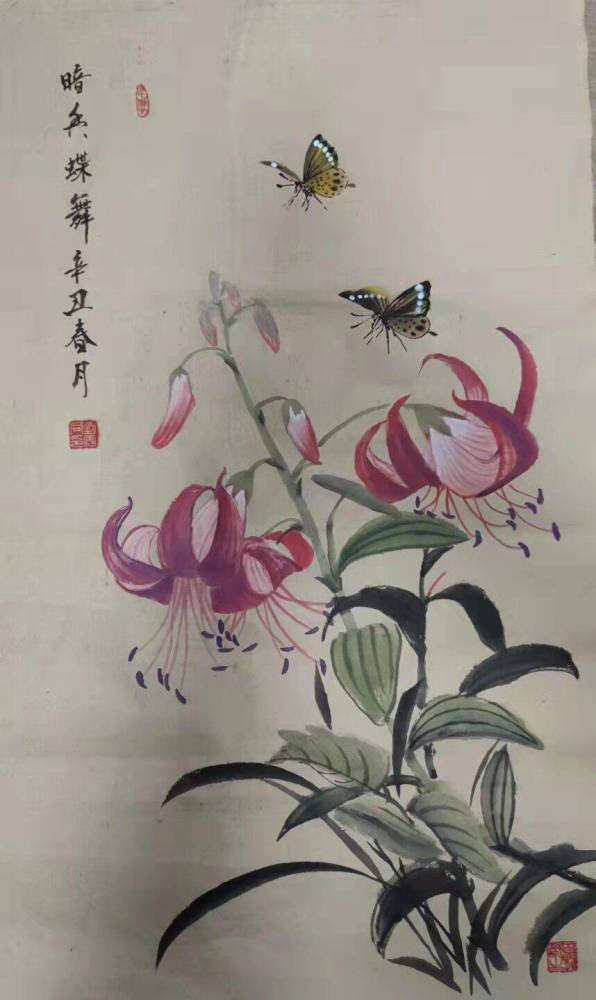 暗香蝶舞辛丑春月